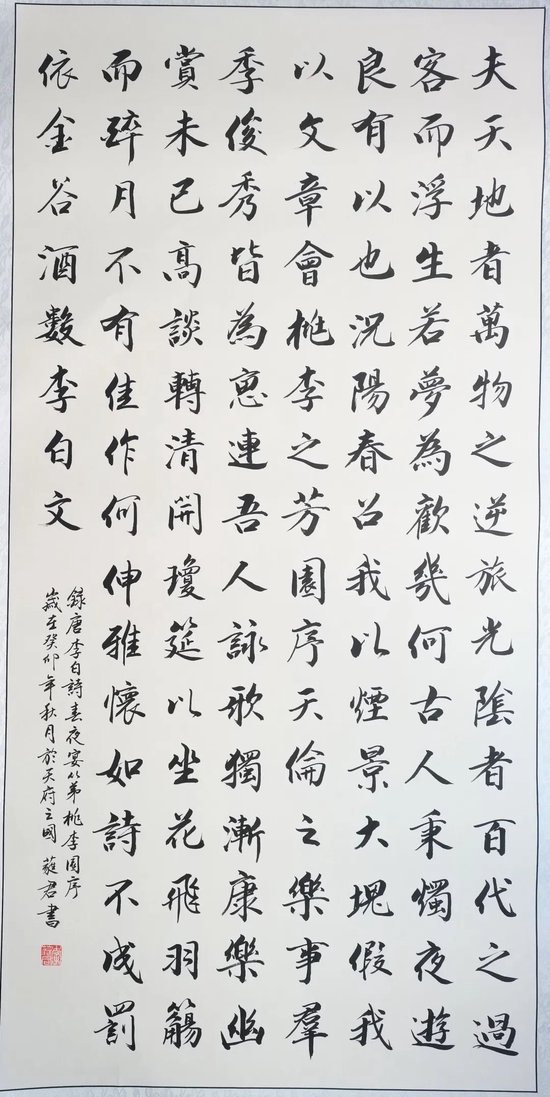 夫天地者萬物之逆旅光陰者百代之過
客而浮生若夢為歡幾何古人秉燭夜遊
良有以也況陽春召我以煙景大塊假我
以文章會桃李之芳園序天倫之樂事羣
季俊秀皆為惠連吾人詠歌獨漸康樂幽
賞未已髙談轉清開瓊筵以坐花飛羽觴
而醉月不有佳作何伸雅懷如詩不成罰
依金谷酒數李白文
錄唐李白詩春夜宴从弟桃李園序
歲在癸卯年秋月於天府之國 君書